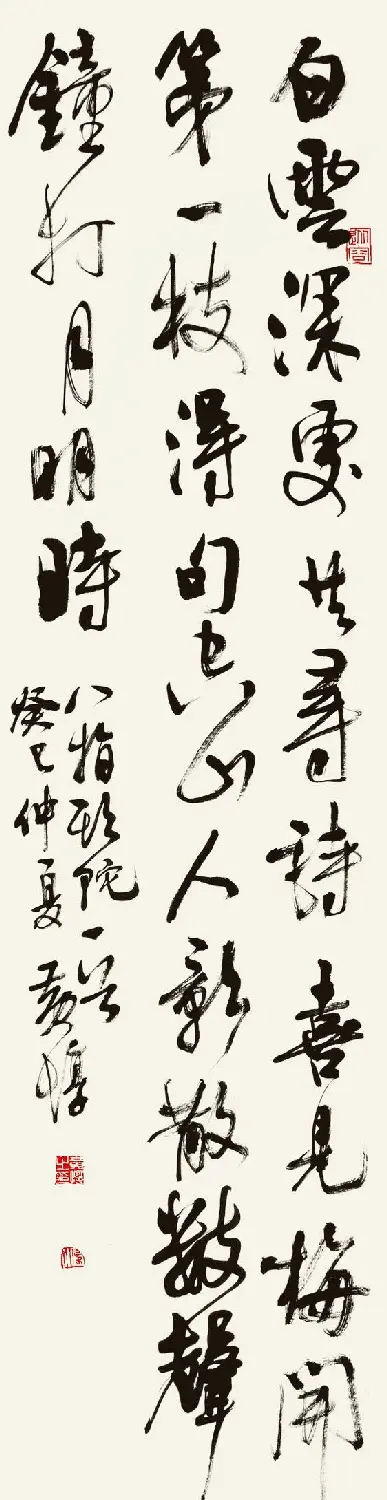 白雲深處共尋詩喜見梅開
第一枝得句空山人影散數聲
鐘打月明時
八指頭陀一首
癸巳仲夏黃惇